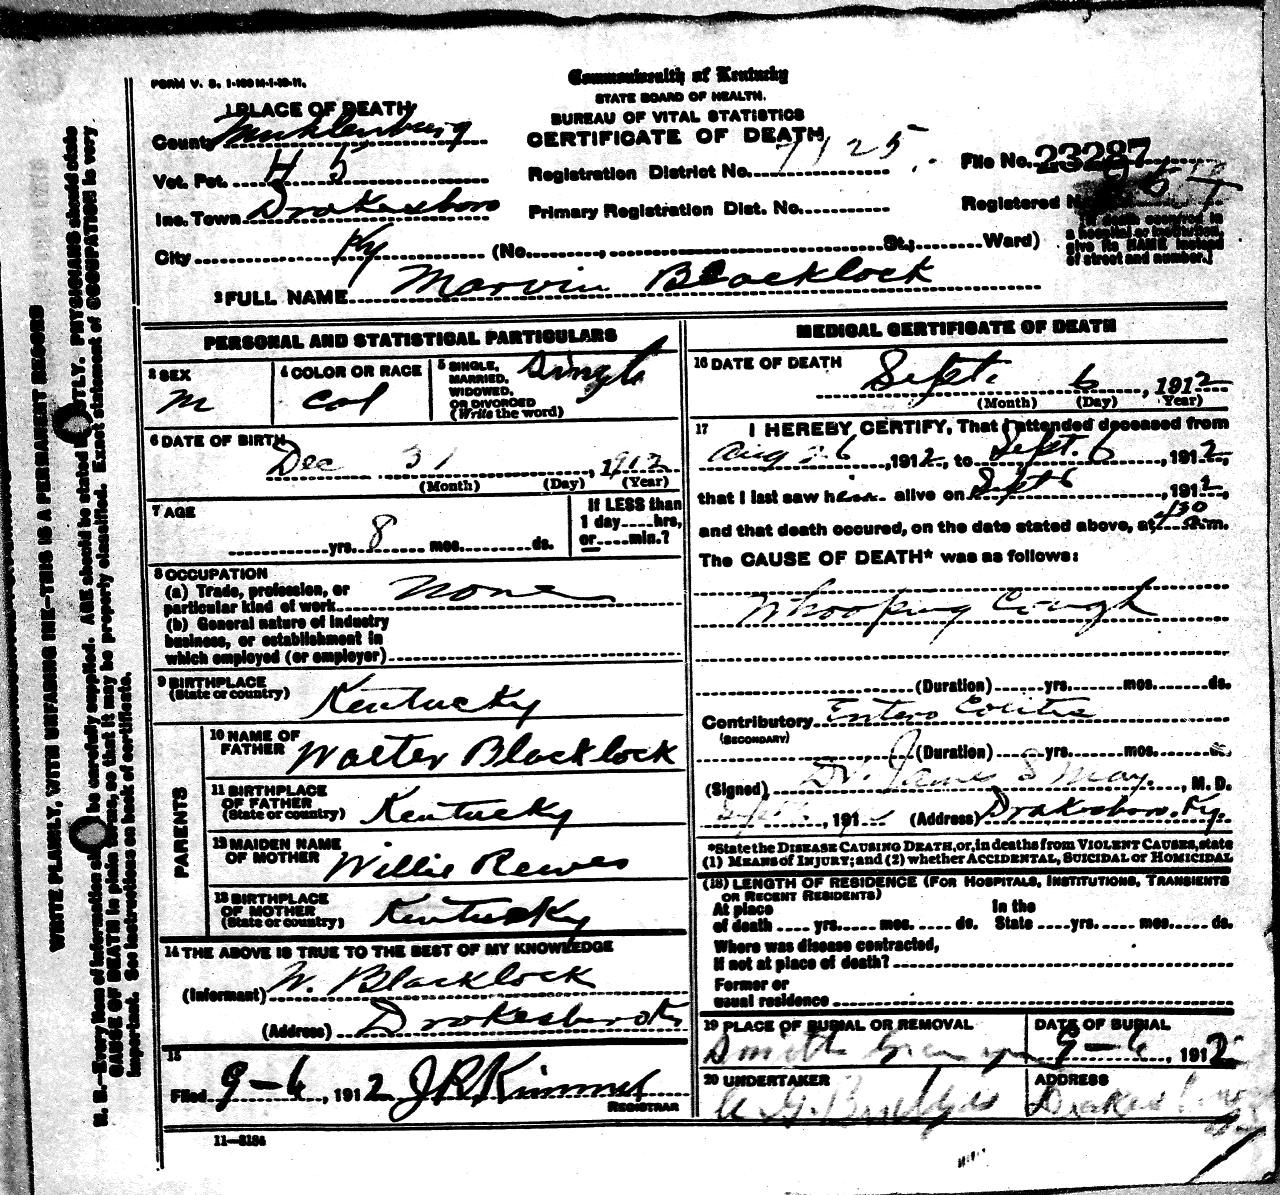 FORM V. S. 1-100 M-1-10-11.
Commonwealth of Kentucky
STATE BOARD OF HEALTH.
BUREAU OF VITAL STATISTICS
CERTIFICATE OF DEATH
1 PLACE OF DEATH
County Muhlenburg
Vot. Pct. H 5
Inc. Town Drakesboro
City Ky (No. St.; Ward)
Registration District No. 7125.
Primary Registration Dist. No.
File No. 23287
Registered
[If death occurred in
a hospital or institution,
give its NAME instead
of street and number.]
2 FULL NAME Marvin Blacklock
PERSONAL AND STATISTICAL PARTICULARS
3 SEX
M
4 COLOR OR RACE
Col
5 SINGLE,
MARRIED,
WIDOWED,
OR DIVORCED
(Write the word)
Single
6 DATE OF BIRTH
Dec 31, 1912
(Month) (Day) (Year)
7 AGE
yrs. 8 mos. ds.
If LESS than
1 day hrs,
or min.?
8 OCCUPATION
(a) Trade, profession, or
particular kind of work None
(b) General nature of industry
business, or establishment in
which employed (or employer)
9 BIRTHPLACE
(State or country) Kentucky
PARENTS
10 NAME OF
FATHER Walter Blacklock
11 BIRTHPLACE
OF FATHER
(State or country) Kentucky
12 MAIDEN NAME
OF MOTHER Willie
13 BIRTHPLACE
OF MOTHER
(State or country) Kentucky
14 THE ABOVE IS TRUE TO THE BEST OF MY KNOWLEDGE
(Informant) W. Blacklock
(Address) Drakesboro Ky
15
Filed 9-6, 1912 J R Kimmel
REGISTRAR
11-3184
MEDICAL CERTIFICATE OF DEATH
16 DATE OF DEATH
Sept. 6, 1912
(Month) (Day) (Year)
17 I HEREBY CERTIFY, That I attended deceased from
Aug 26, 1912, to Sept. 6, 1912,
that I last saw him alive on Sept 6, 1912,
and that death occured, on the date stated above, at 430 a.m.
The CAUSE OF DEATH* was as follows:
Whooping Cough
(Duration) yrs. mos. ds.
Contributory Entero Colitis
(SECONDARY)
(Duration) yrs. mos. ds.
(Signed) Dr. James S May., M. D.
, 191 (Address) Drakesboro. Ky.
*State the DISEASE CAUSING DEATH, or, in deaths from VIOLENT CAUSES, state
(1) MEANS OF INJURY; and (2) whether ACCIDENTAL, SUICIDAL or HOMICIDAL
(18) LENGTH OF RESIDENCE (FOR HOSPITALS, INSTITUTIONS, TRANSIENTS
OR RECENT RESIDENTS)
At place
of death yrs. mos. ds.
In the
State yrs. mos. ds.
Where was disease contracted,
If not at place of death?
Former or
usual residence
19 PLACE OF BURIAL OR REMOVAL
Smith
DATE OF BURIAL
9-6, 1912
20 UNDERTAKER
ADDRESS
WRITE PLAINLY, WITH UNFADING INK—THIS IS A PERMANENT RECORD
N. B.—Every item of information should be carefully supplied. AGE should be stated EXACTLY. PHYSICIANS should state
CAUSE OF DEATH in plain terms, so that it may be properly classified. Exact statement of OCCUPATION is very
important. See instructions on back of certificate.